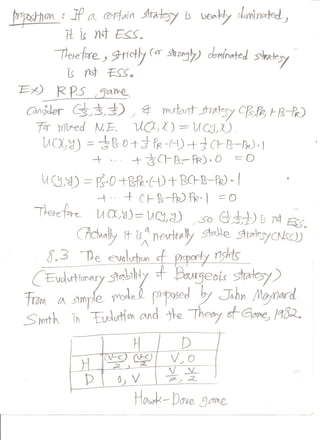 Proposition : If a certain strategy is weakly dominated,
it is not ESS.
Therefore, strictly (or strongly) dominated strategy
is not ESS.
Ex) R.P.S game
Consider (1/3, 1/3, 1/3), & mutant strategy (Ps, PR, 1-Ps-PR)
For mixed N.E. U(x,x) = U(y,x).
U(x,y) = 1/3 Ps·0 + 1/3 PR·(-1) + 1/3(1-Ps-PR)·1
+ ··· + 1/3(1-Ps-PR)·0 = 0
U(y,y) = Ps²·0 + PsPR·(-1) + Ps(1-Ps-PR)·1
+ ··· + (1-Ps-PR)PR·1 = 0
Therefore U(x,y) = U(y,y), so (1/3, 1/3, 1/3) is not ESS.
(Actually it is a neutrally stable strategy (NSS))
8.3 The evolution of property rights
(Evolutionary stability of Bourgeois strategy)
From a simple model proposed by John Maynard
Smith in Evolution and the Theory of Game, 1982.
H D
H (V-C)/2, (V-C)/2 V, 0
D 0, V V/2, V/2
Hawk-Dove game